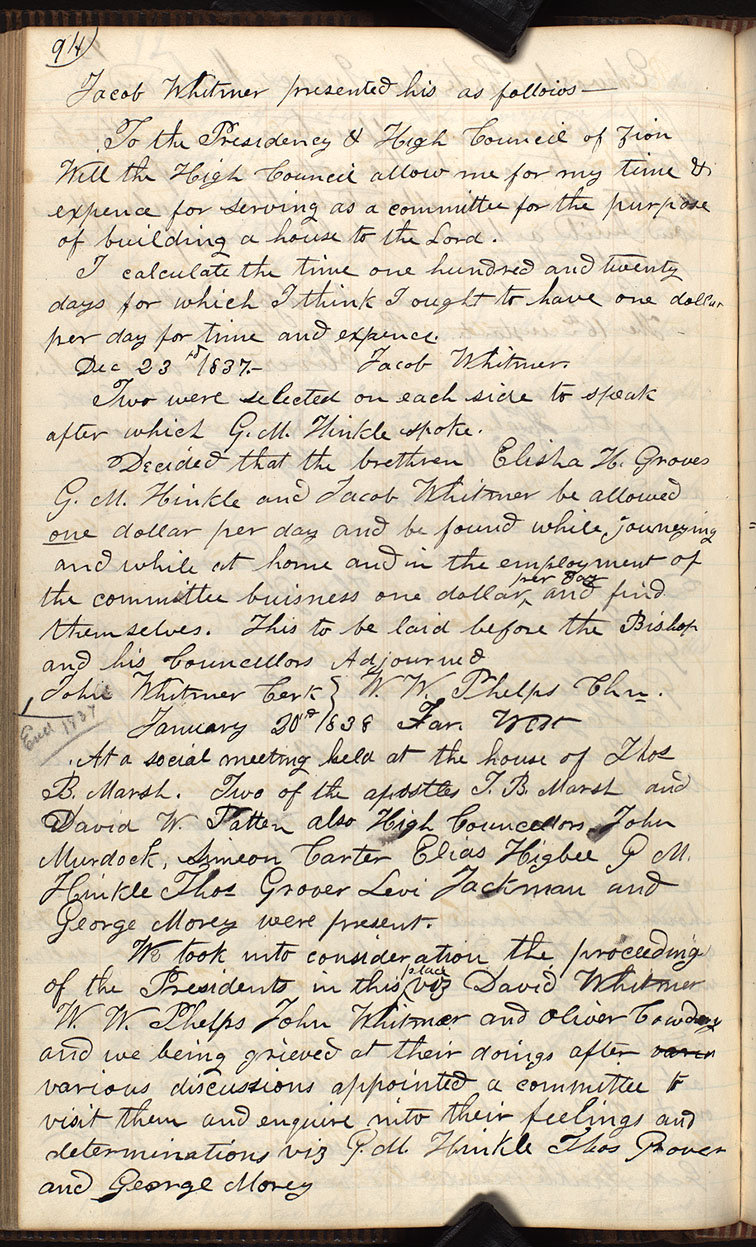 94)
Jacob Whitmer presented his as follows—
To the Presidency & High Council of Zion
Will the High Council allow me for my time &
expence for serving as a committee for the purpose
of building a house to the Lord.
I calculate the time one hundred and twenty
days for which I think I ought to have one dollar
per day for time and expence.
Dec 23rd 1837.— Jacob Whitmer.
Two were selected on each side to speak
after which G. M. Hinkle spoke.
Decided that the brethren Elisha H. Groves
G. M. Hinkle and Jacob Whitmer be allowed
one dollar per day and be found while journeying
and while at home and in the employment of
the committee buisness one dollar per day and find
themselves. This to be laid before the Bishop
and his Councellors Adjourned
John Whitmer Cerk } W. W. Phelps Chn.
End 1837
January 20th 1838 Far West
At a social meeting held at the house of Thos
B. Marsh. Two of the apostles T. B. Marsh and
David W. Patten also High Councellors John
Murdock, Simeon Carter Elias Higbee G M.
Hinkle Thos Grover Levi Jackman and
George Morey were present.
We took into consideration the proceeding
of the Presidents in this place viz David Whitmer
W. W. Phelps John Whitmer and Oliver Cowdery
and we being grieved at their doings after
various discussions appointed a committee to
visit them and enquire into their feelings and
determinations viz G. M. Hinkle Thos Grover
and George Morey